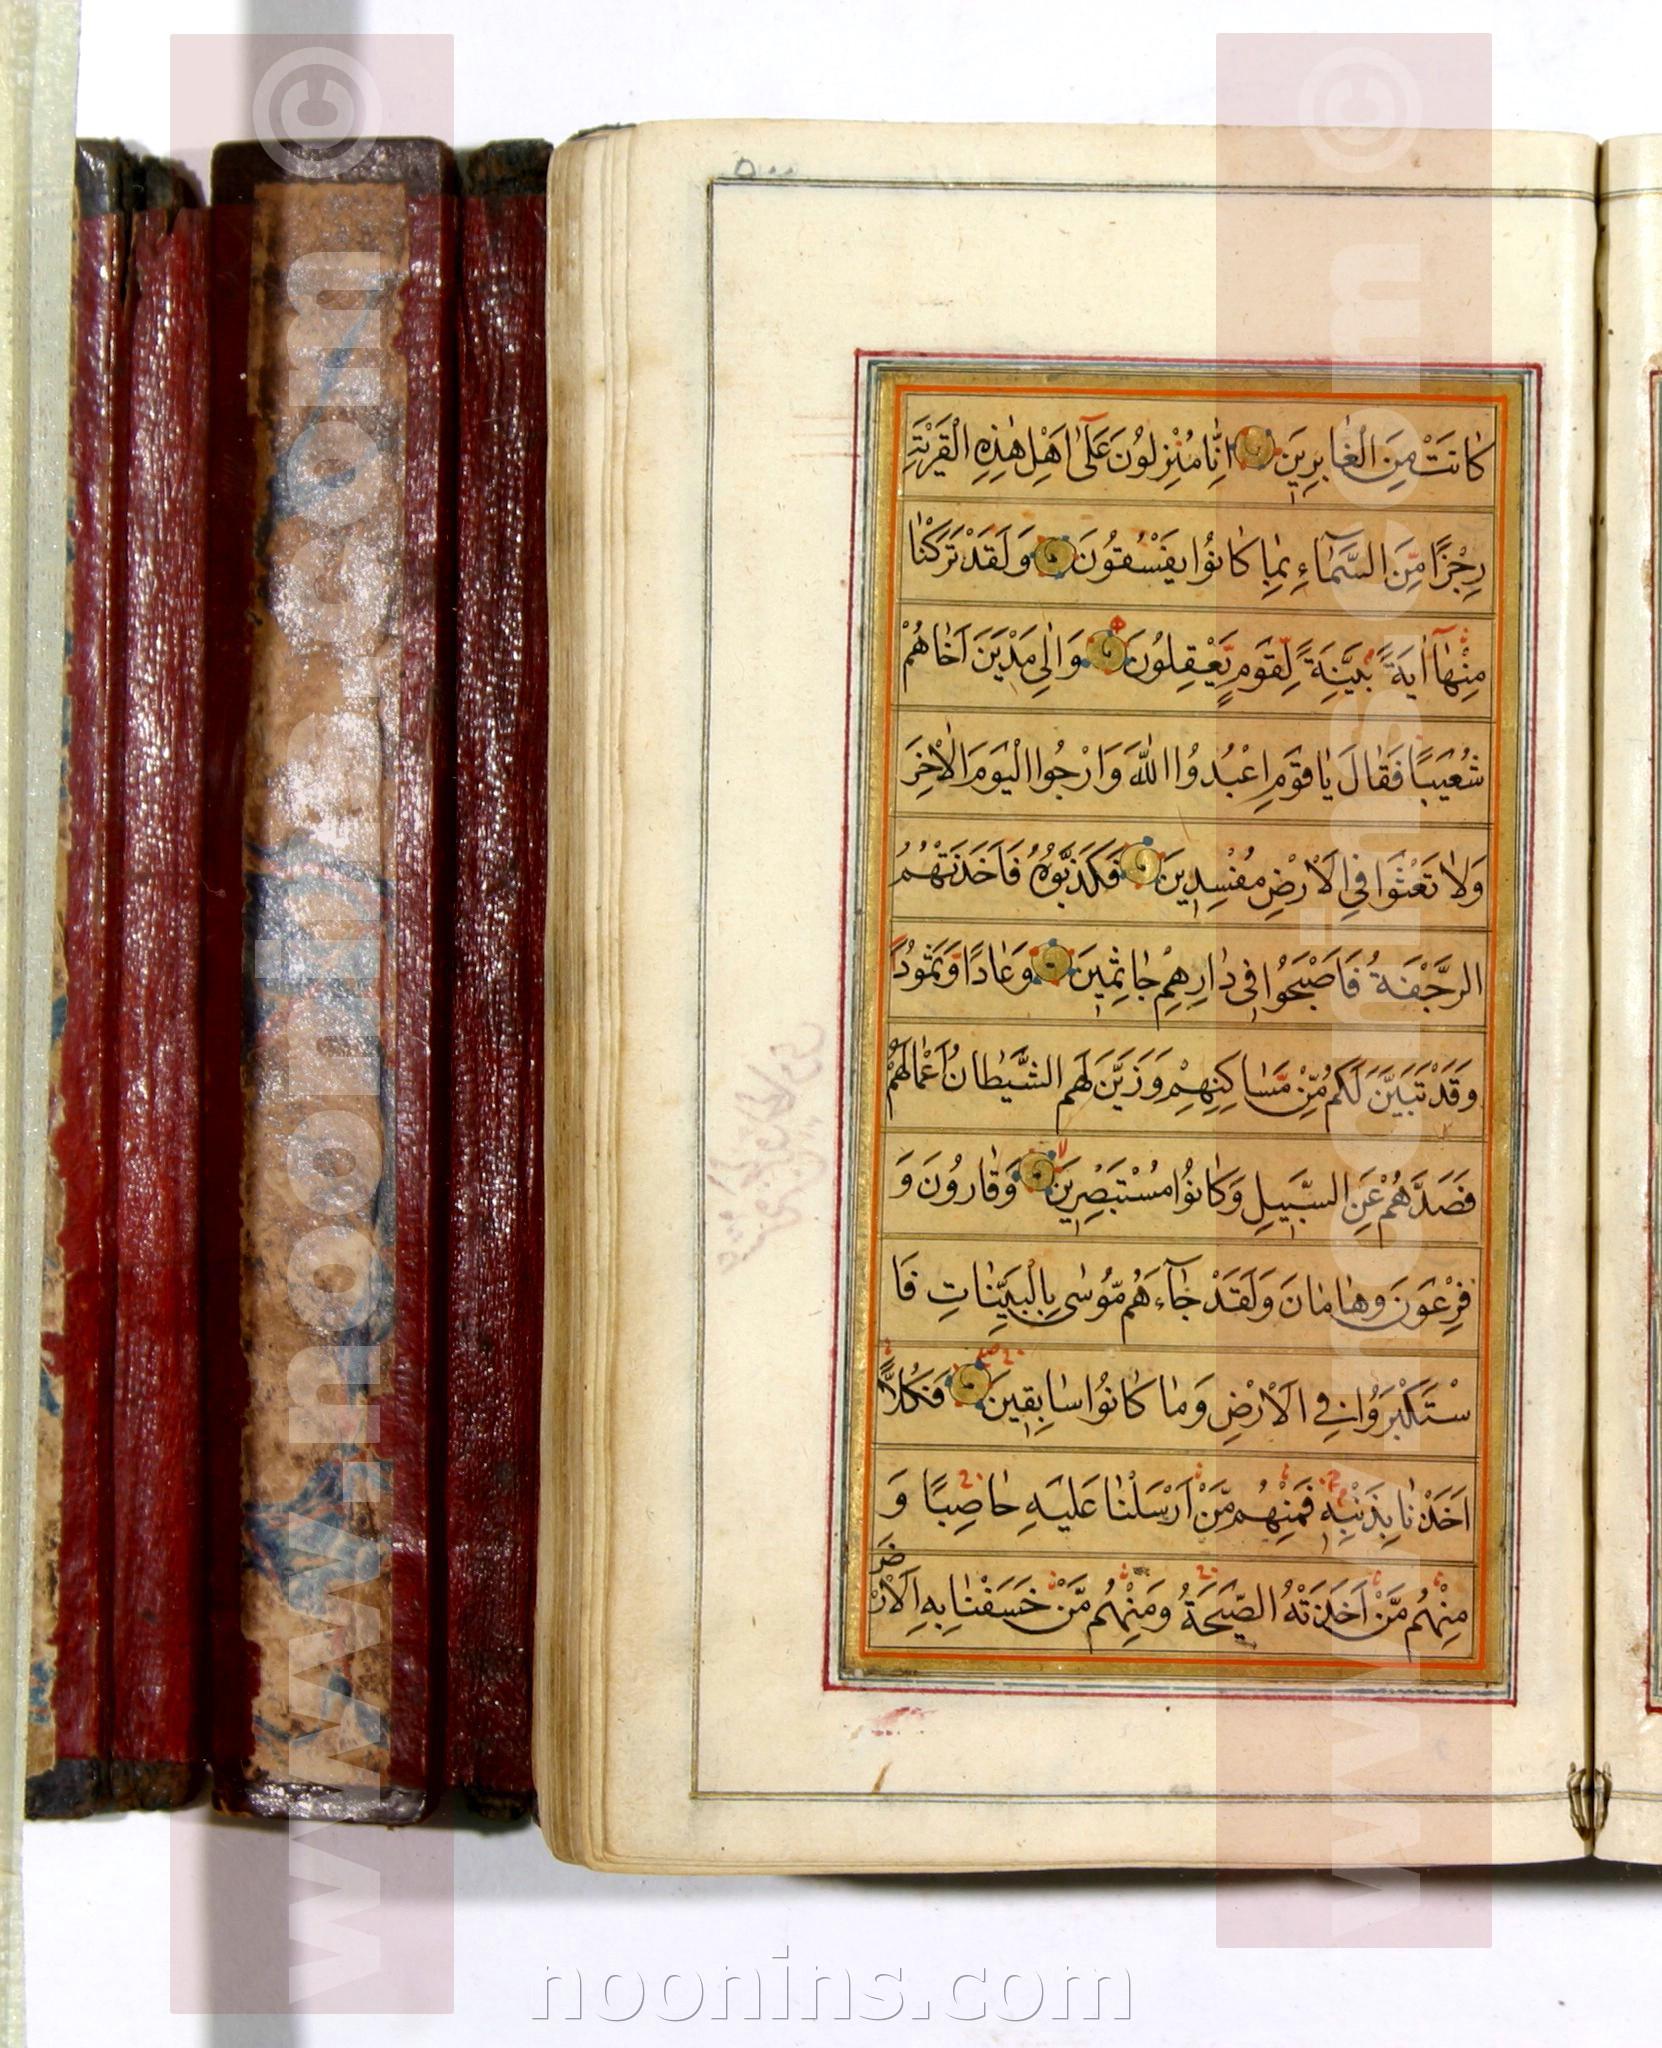 كٰانَتْ مِنَ الْغٰابِرِينَ اِنّٰا مُنْزِلُونَ عَلٰٓى اَهْلِ هٰذِهِ الْقَرْيَةِ
رِجْزًا مِنَ السَّمٰٓاءِ بِمٰا كٰانُوا يَفْسُقُونَ وَلَقَدْ تَرَكْنٰا
مِنْهٰٓا اٰيَةً بَيِّنَةً لِقَوْمٍ يَعْقِلُونَ وَاِلٰى مَدْيَنَ اَخٰاهُمْ
شُعَيْبًا فَقٰالَ يٰا قَوْمِ اعْبُدُوا اللّٰهَ وَارْجُوا الْيَوْمَ الْاٰخِرَ
وَلٰا تَعْثَوْا فِي الْاَرْضِ مُفْسِدِينَ فَكَذَّبُوهُ فَاَخَذَتْهُمُ
الرَّجْفَةُ فَاَصْبَحُوا فِي دٰارِهِمْ جٰاثِمِينَ وَعٰادًا وَثَمُودًا
وَقَدْ تَبَيَّنَ لَكُمْ مِنْ مَسٰاكِنِهِمْ وَزَيَّنَ لَهُمُ الشَّيْطٰانُ اَعْمٰالَهُمْ
فَصَدَّهُمْ عَنِ السَّبِيلِ وَكٰانُوا مُسْتَبْصِرِينَ وَقٰارُونَ وَ
فِرْعَوْنَ وَهٰامٰانَ وَلَقَدْ جٰٓاءَهُمْ مُوسٰى بِالْبَيِّنٰاتِ فَا
سْتَكْبَرُوا فِي الْاَرْضِ وَمٰا كٰانُوا سٰابِقِينَ فَكُلًّا
اَخَذْنٰا بِذَنْبِهِ فَمِنْهُمْ مَنْ اَرْسَلْنٰا عَلَيْهِ حٰاصِبًا وَ
مِنْهُمْ مَنْ اَخَذَتْهُ الصَّيْحَةُ وَمِنْهُمْ مَنْ خَسَفْنٰا بِهِ الْاَرْضَ
www.noonins.com ©
www.noonins.com ©
noonins.com